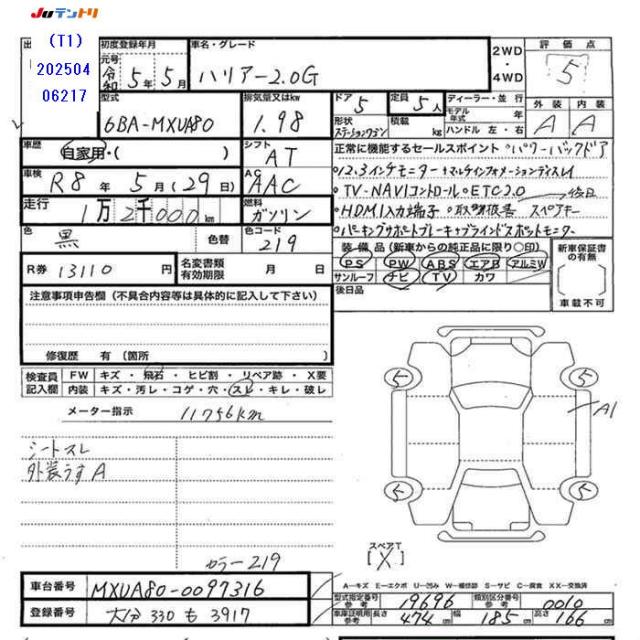 JUテントリ
(T1)
202504
06217
初度登録年月
車名・グレード
元号
令和 5年 5月
ハリアー2.0G
2WD
4WD
評価点
5
型式
6BA-MXUA80
排気量又はkw
1.98
ドア
5
定員
5人
形状
ステーションワゴン
積載
kg
ディーラー・並行
モデル年式
年式
ハンドル 左・右
外装
内装
A
A
車歴
自家用・( )
シフト
AT
正常に機能するセールスポイント ・パワーバックドア
・12.3インチモニター+マルチインフォメーションディスプレイ
・TV-NAVIコントロール・ETC2.0
・HDMI入力端子・取扱後送 スペアキー
後日
・パーキングサポートブレーキ+ブラインドスポットモニター
車検
R8年 5月(29日)
AC
AAC
走行
1万2千000km
燃料
ガソリン
色
黒
色替
色コード
219
R券
13110円
名変書類有効期限
月 日
装備品(新車からの純正品に限り〇印)
PS PW ABS エアB アルミW
サンルーフ ナビ TV カワ
後日品
新車保証書の有無
車載不可
注意事項申告欄(不具合内容等は具体的に記入して下さい)
修復歴 有(箇所 )
検査員記入欄
FW キズ・飛石・ヒビ割・リペア跡・X要
内装 キズ・汚レ・コゲ・穴・スレ・キレ・破レ
メーター指示
11756km
シートスレ
外装うすA
カラー219
5
5
5
5
A1
スペアT
[X]
A-キズ E-エクボ U-凹み W-補修跡 S-サビ C-腐食 XX-交換済
車台番号
MXUA80-0097316
登録番号
大分 330 も 3917
型式指定番号
参考
19696
類別区分番号
参考
0010
車庫証明用
参考
長さ 474cm
幅 185cm
高さ 166cm